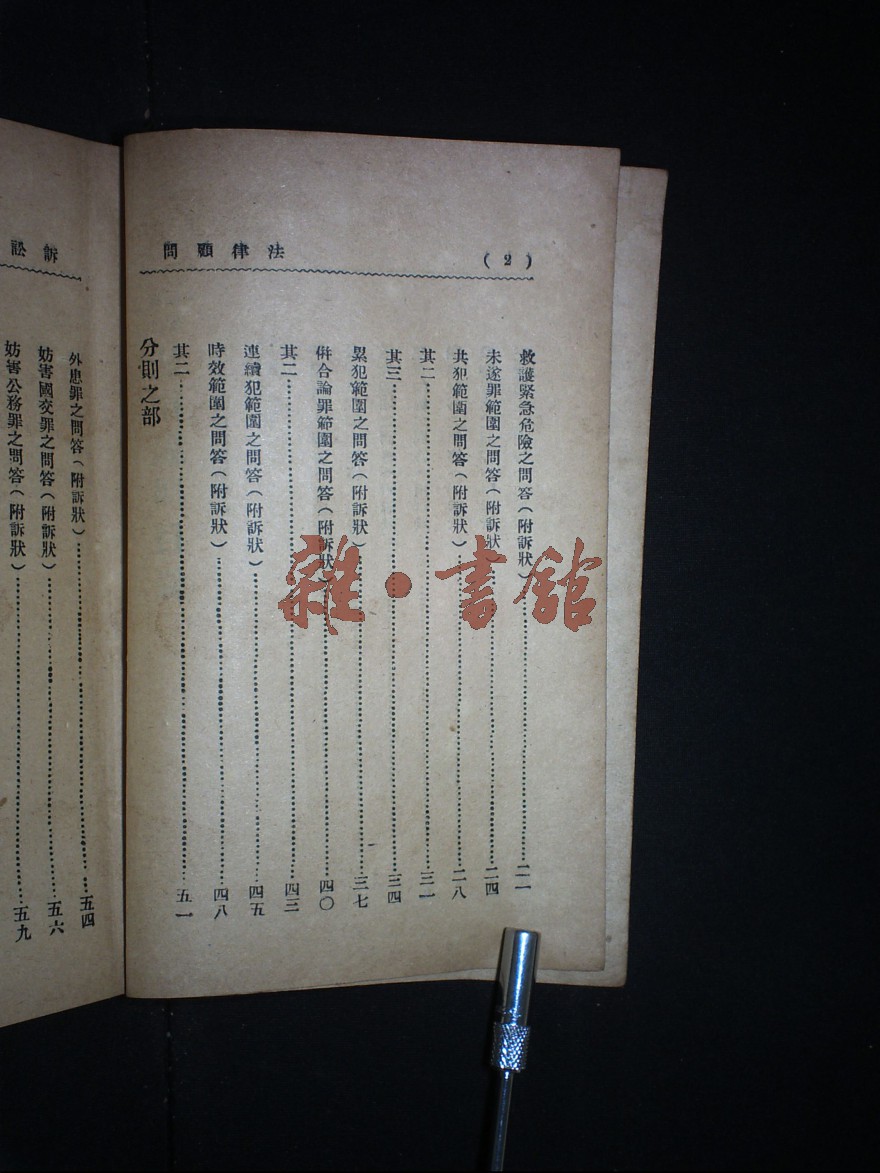 (2)
法律顧問
救護緊急危險之問答(附訴狀)……二一
未遂罪範圍之問答(附訴狀)……二四
共犯範圍之問答(附訴狀)……二八
其二……三一
其三……三四
累犯範圍之問答(附訴狀)……三七
併合論罪範圍之問答(附訴狀)……四〇
其二……四三
連續犯範圍之問答(附訴狀)……四五
時效範圍之問答(附訴狀)……四八
其二……五一
分則之部
訴訟
外患罪之問答(附訴狀)……五四
妨害國交罪之問答(附訴狀)……五六
妨害公務罪之問答(附訴狀)……五九
雜·書館